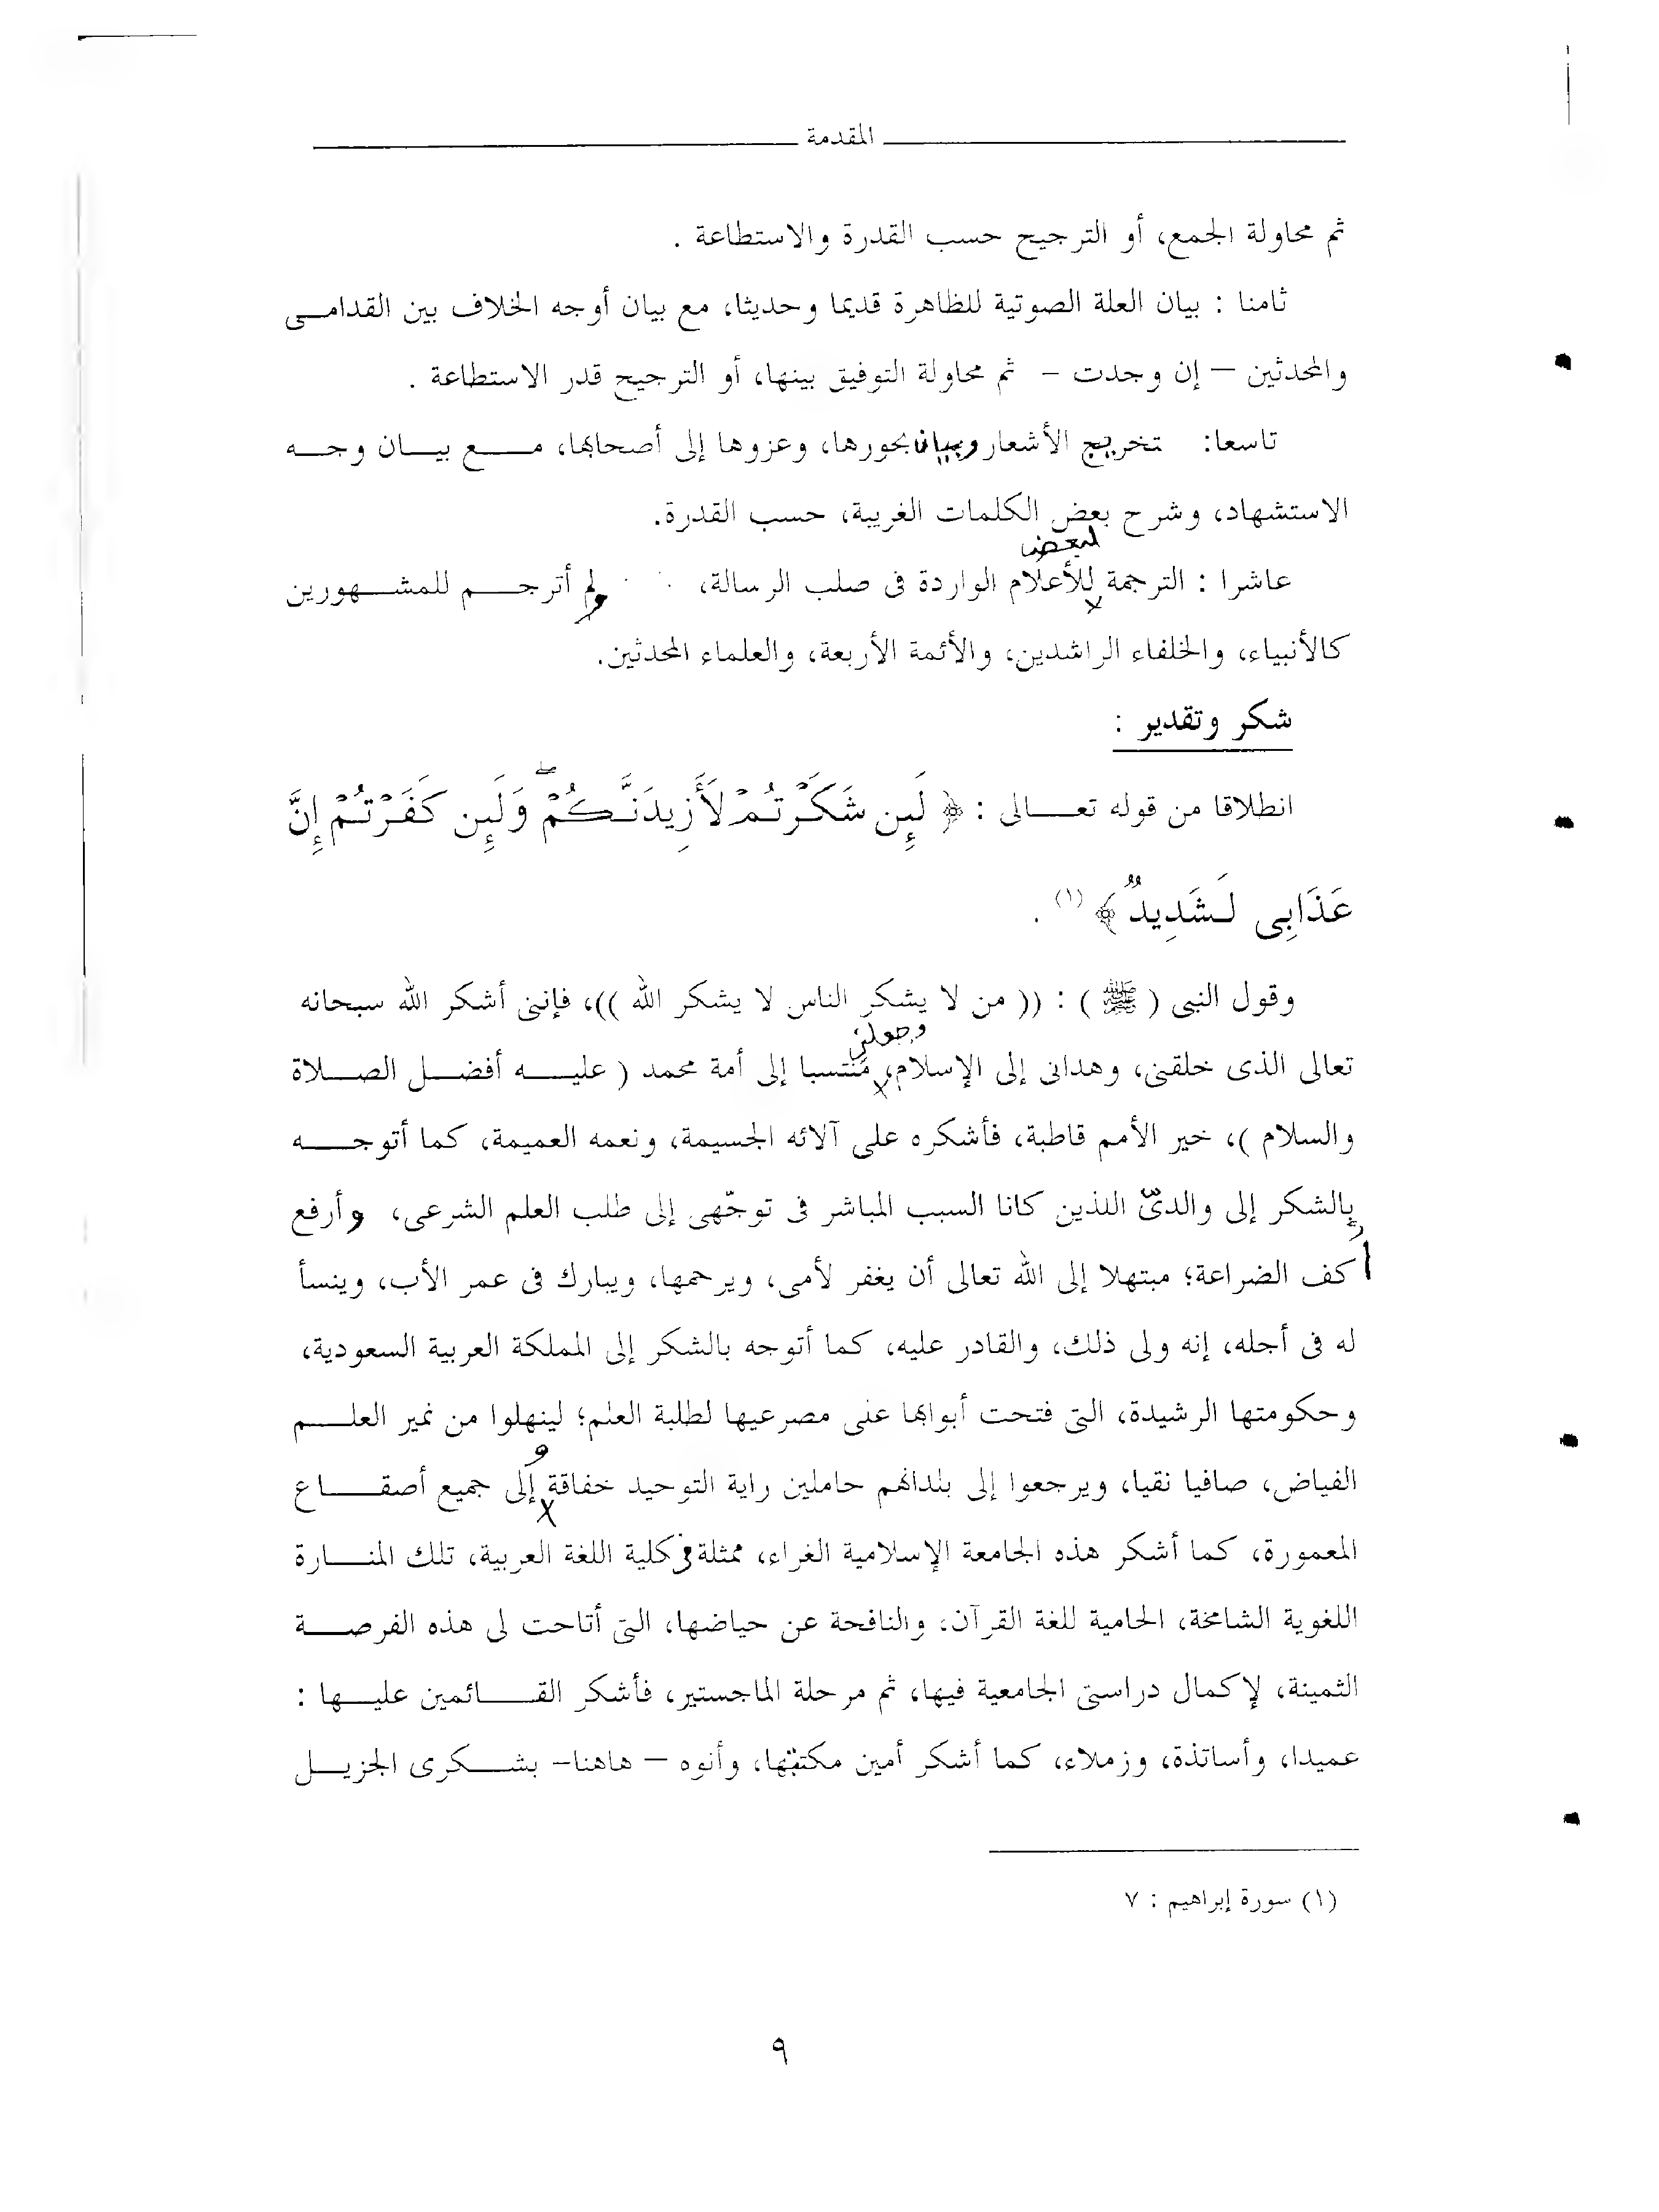 المقدمة
ثم محاولة الجمع، أو الترجيح حسب القدرة والاستطاعة .
ثامنا : بيان العلة الصوتية للظاهرة قديما وحديثا، مع بيان أوجه الخلاف بين القدامى
والمحدثين – إن وجدت – ثم محاولة التوفيق بينها، أو الترجيح قدر الاستطاعة .
تاسعا: تخريج الأشعار وبيان بحورها، وعزوها إلى أصحابها، مع بيان وجه
الاستشهاد، وشرح بعض الكلمات الغريبة، حسب القدرة.
لبعض
عاشرا : الترجمة للأعلام الواردة فى صلب الرسالة، ولم أترجم للمشهورين
كالأنبياء، والخلفاء الراشدين، والأئمة الأربعة، والعلماء المحدثين.
شكر وتقدير :
انطلاقا من قوله تعالى : ﴿ لَئِن شَكَرْتُمْ لَأَزِيدَنَّكُمْ ۖ وَلَئِن كَفَرْتُمْ إِنَّ
عَذَابِى لَشَدِيدٌ ﴾ (١) .
وقول النبى ( ﷺ ) : (( من لا يشكر الناس لا يشكر الله ))، فإننى أشكر الله سبحانه
وجعلنى
تعالى الذى خلقنى، وهدانى إلى الإسلام، منتسبا إلى أمة محمد ( عليه أفضل الصلاة
والسلام )، خير الأمم قاطبة، فأشكره على آلائه الجسيمة، ونعمه العميمة، كما أتوجه
بالشكر إلى والدىّ اللذين كانا السبب المباشر فى توجّهى إلى طلب العلم الشرعى، وأرفع
أكف الضراعة؛ مبتهلا إلى الله تعالى أن يغفر لأمى، ويرحمها، ويبارك فى عمر الأب، وينسأ
له فى أجله، إنه ولى ذلك، والقادر عليه، كما أتوجه بالشكر إلى المملكة العربية السعودية،
وحكومتها الرشيدة، التى فتحت أبوابها على مصرعيها لطلبة العلم؛ لينهلوا من نمير العلم
و
الفياض، صافيا نقيا، ويرجعوا إلى بلدانهم حاملين راية التوحيد خفاقة إلى جميع أصقاع
المعمورة، كما أشكر هذه الجامعة الإسلامية الغراء، ممثلة فى كلية اللغة العربية، تلك المنارة
اللغوية الشامخة، الحامية للغة القرآن، والنافحة عن حياضها، التى أتاحت لى هذه الفرصة
الثمينة، لإكمال دراستى الجامعية فيها، ثم مرحلة الماجستير، فأشكر القائمين عليها :
عميدا، وأساتذة، وزملاء، كما أشكر أمين مكتبتها، وأنوه – هاهنا– بشكرى الجزيل
(١) سورة إبراهيم : ٧
٩